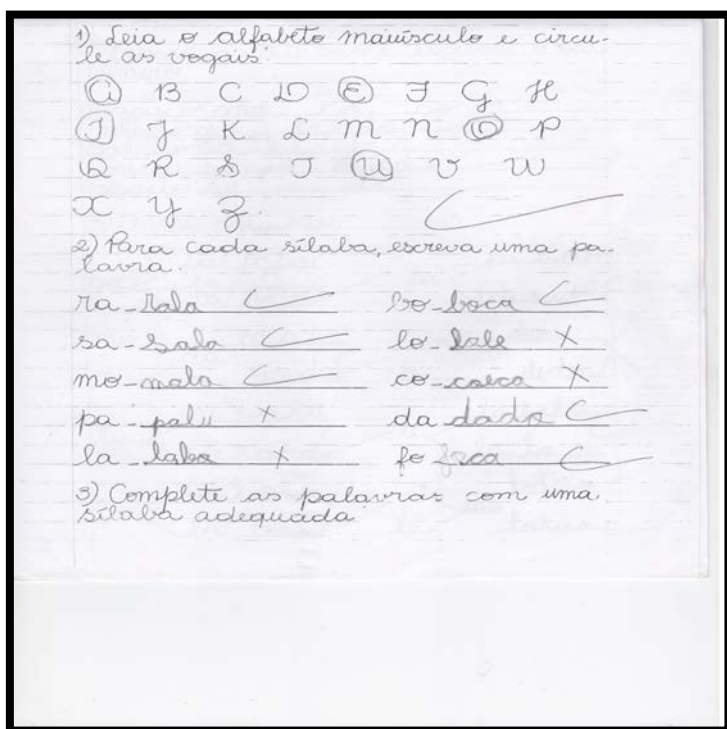 1) Leia o alfabeto maiúsculo e circu-
le as vogais:
A B C D E F G H
I J K L M N O P
Q R S T U V W
X Y Z.
2) Para cada sílaba, escreva uma pa-
lavra.
ra - Rala bo - boca
sa - Sala lo - lale
mo - mala co -
pa - da dada
la - fo foca
3) Complete as palavras com uma
sílaba adequada